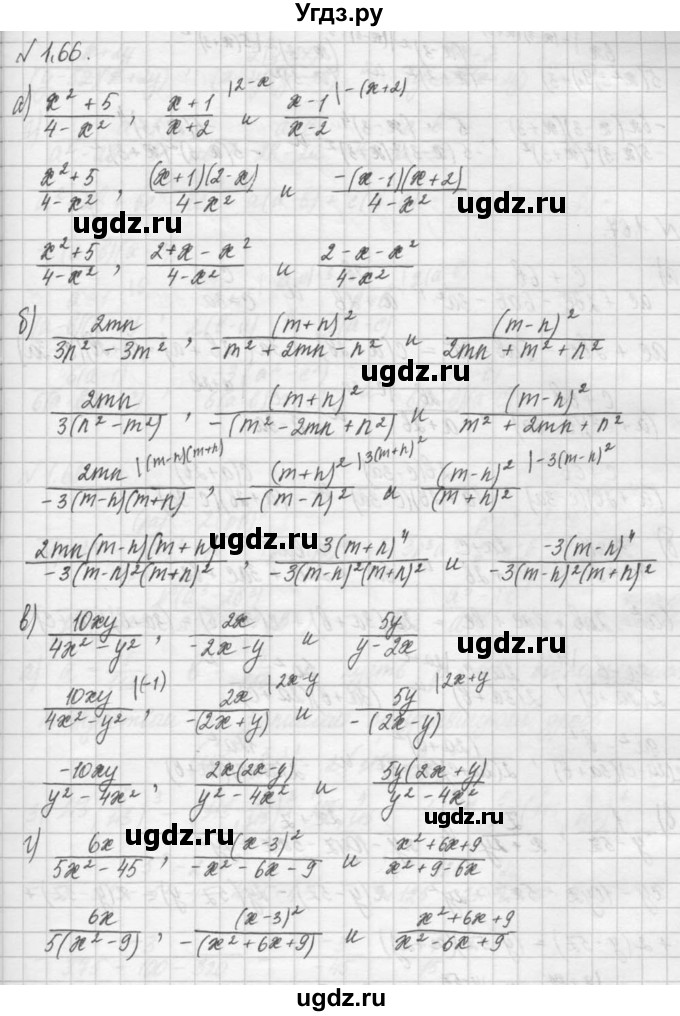 Угдз.ру
№ 1.66.
а) (x² + 5)/(4 − x²), (x + 1)/(x + 2) |2−x и (x − 1)/(x − 2) |−(x+2)
(x² + 5)/(4 − x²), ((x+1)(2−x))/(4 − x²) и (−(x−1)(x+2))/(4 − x²)
ugdz.ru ugdz.ru
(x² + 5)/(4 − x²), (2 + x − x²)/(4 − x²) и (2 − x − x²)/(4 − x²)
б) 2mn/(3n² − 3m²), (m+n)²/(−m² + 2mn − n²) и (m−n)²/(2mn + m² + n²)
ugdz.ru
2mn/(3(n² − m²)), (m+n)²/(−(m² − 2mn + n²)) и (m−n)²/(m² + 2mn + n²)
2mn/(−3(m−n)(m+n)) |(m−n)(m+n), −(m+n)²/(m−n)² |3(m+n)² и (m−n)²/(m+n)² |−3(m−n)²
ugdz.ru ugdz.ru
2mn(m−n)(m+n)/(−3(m−n)²(m+n)²), 3(m+n)⁴/(−3(m−n)²(m+n)²) и −3(m−n)⁴/(−3(m−n)²(m+n)²)
в) 10xy/(4x² − y²), 2x/(−2x − y) и 5y/(y − 2x)
ugdz.ru
10xy/(4x² − y²) |(−1), 2x/(−(2x + y)) |2x−y и 5y/(−(2x − y)) |2x+y
−10xy/(y² − 4x²), 2x(2x−y)/(y² − 4x²) и 5y(2x + y)/(y² − 4x²)
ugdz.ru ugdz.ru
г) 6x/(5x² − 45), (x−3)²/(−x² − 6x − 9) и (x² + 6x + 9)/(x² + 9 − 6x)
6x/(5(x² − 9)), (x−3)²/(−(x² + 6x + 9)) и (x² + 6x + 9)/(x² − 6x + 9)
ugdz.ru
ugdz.ru